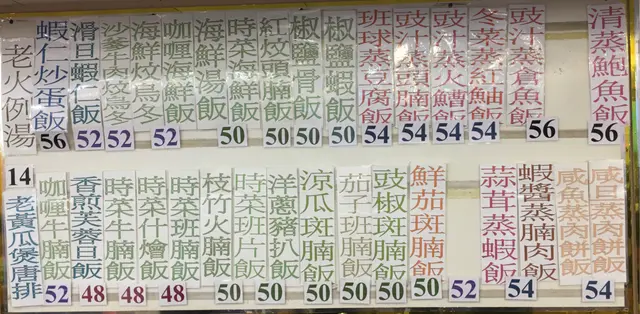 老火例湯
14
蝦仁炒蛋飯
56
滑旦蝦仁飯
52
沙爹牛肉炆烏冬
52
海鮮炆烏冬
咖喱海鮮飯
52
海鮮湯飯
時菜海鮮飯
50
紅炆鴨腩飯
50
椒鹽骨飯
50
椒鹽蝦飯
50
班球蒸豆腐飯
54
豉汁蒸頭腩飯
54
豉汁蒸火鰽飯
54
冬菜蒸紅鮋飯
54
豉汁蒸倉魚飯
56
清蒸鮑魚飯
56
老黃瓜煲唐排
咖喱牛腩飯
52
香煎芙蓉旦飯
48
時菜牛腩飯
48
時菜什燴飯
48
時菜班腩飯
枝竹火腩飯
50
時菜班片飯
50
洋蔥豬扒飯
50
涼瓜斑腩飯
50
茄子班腩飯
50
豉椒斑腩飯
50
鮮茄斑腩飯
50
52
蒜茸蒸蝦飯
蝦醬蒸腩肉飯
54
咸魚蒸肉餅飯
54
咸旦蒸肉餅飯
54